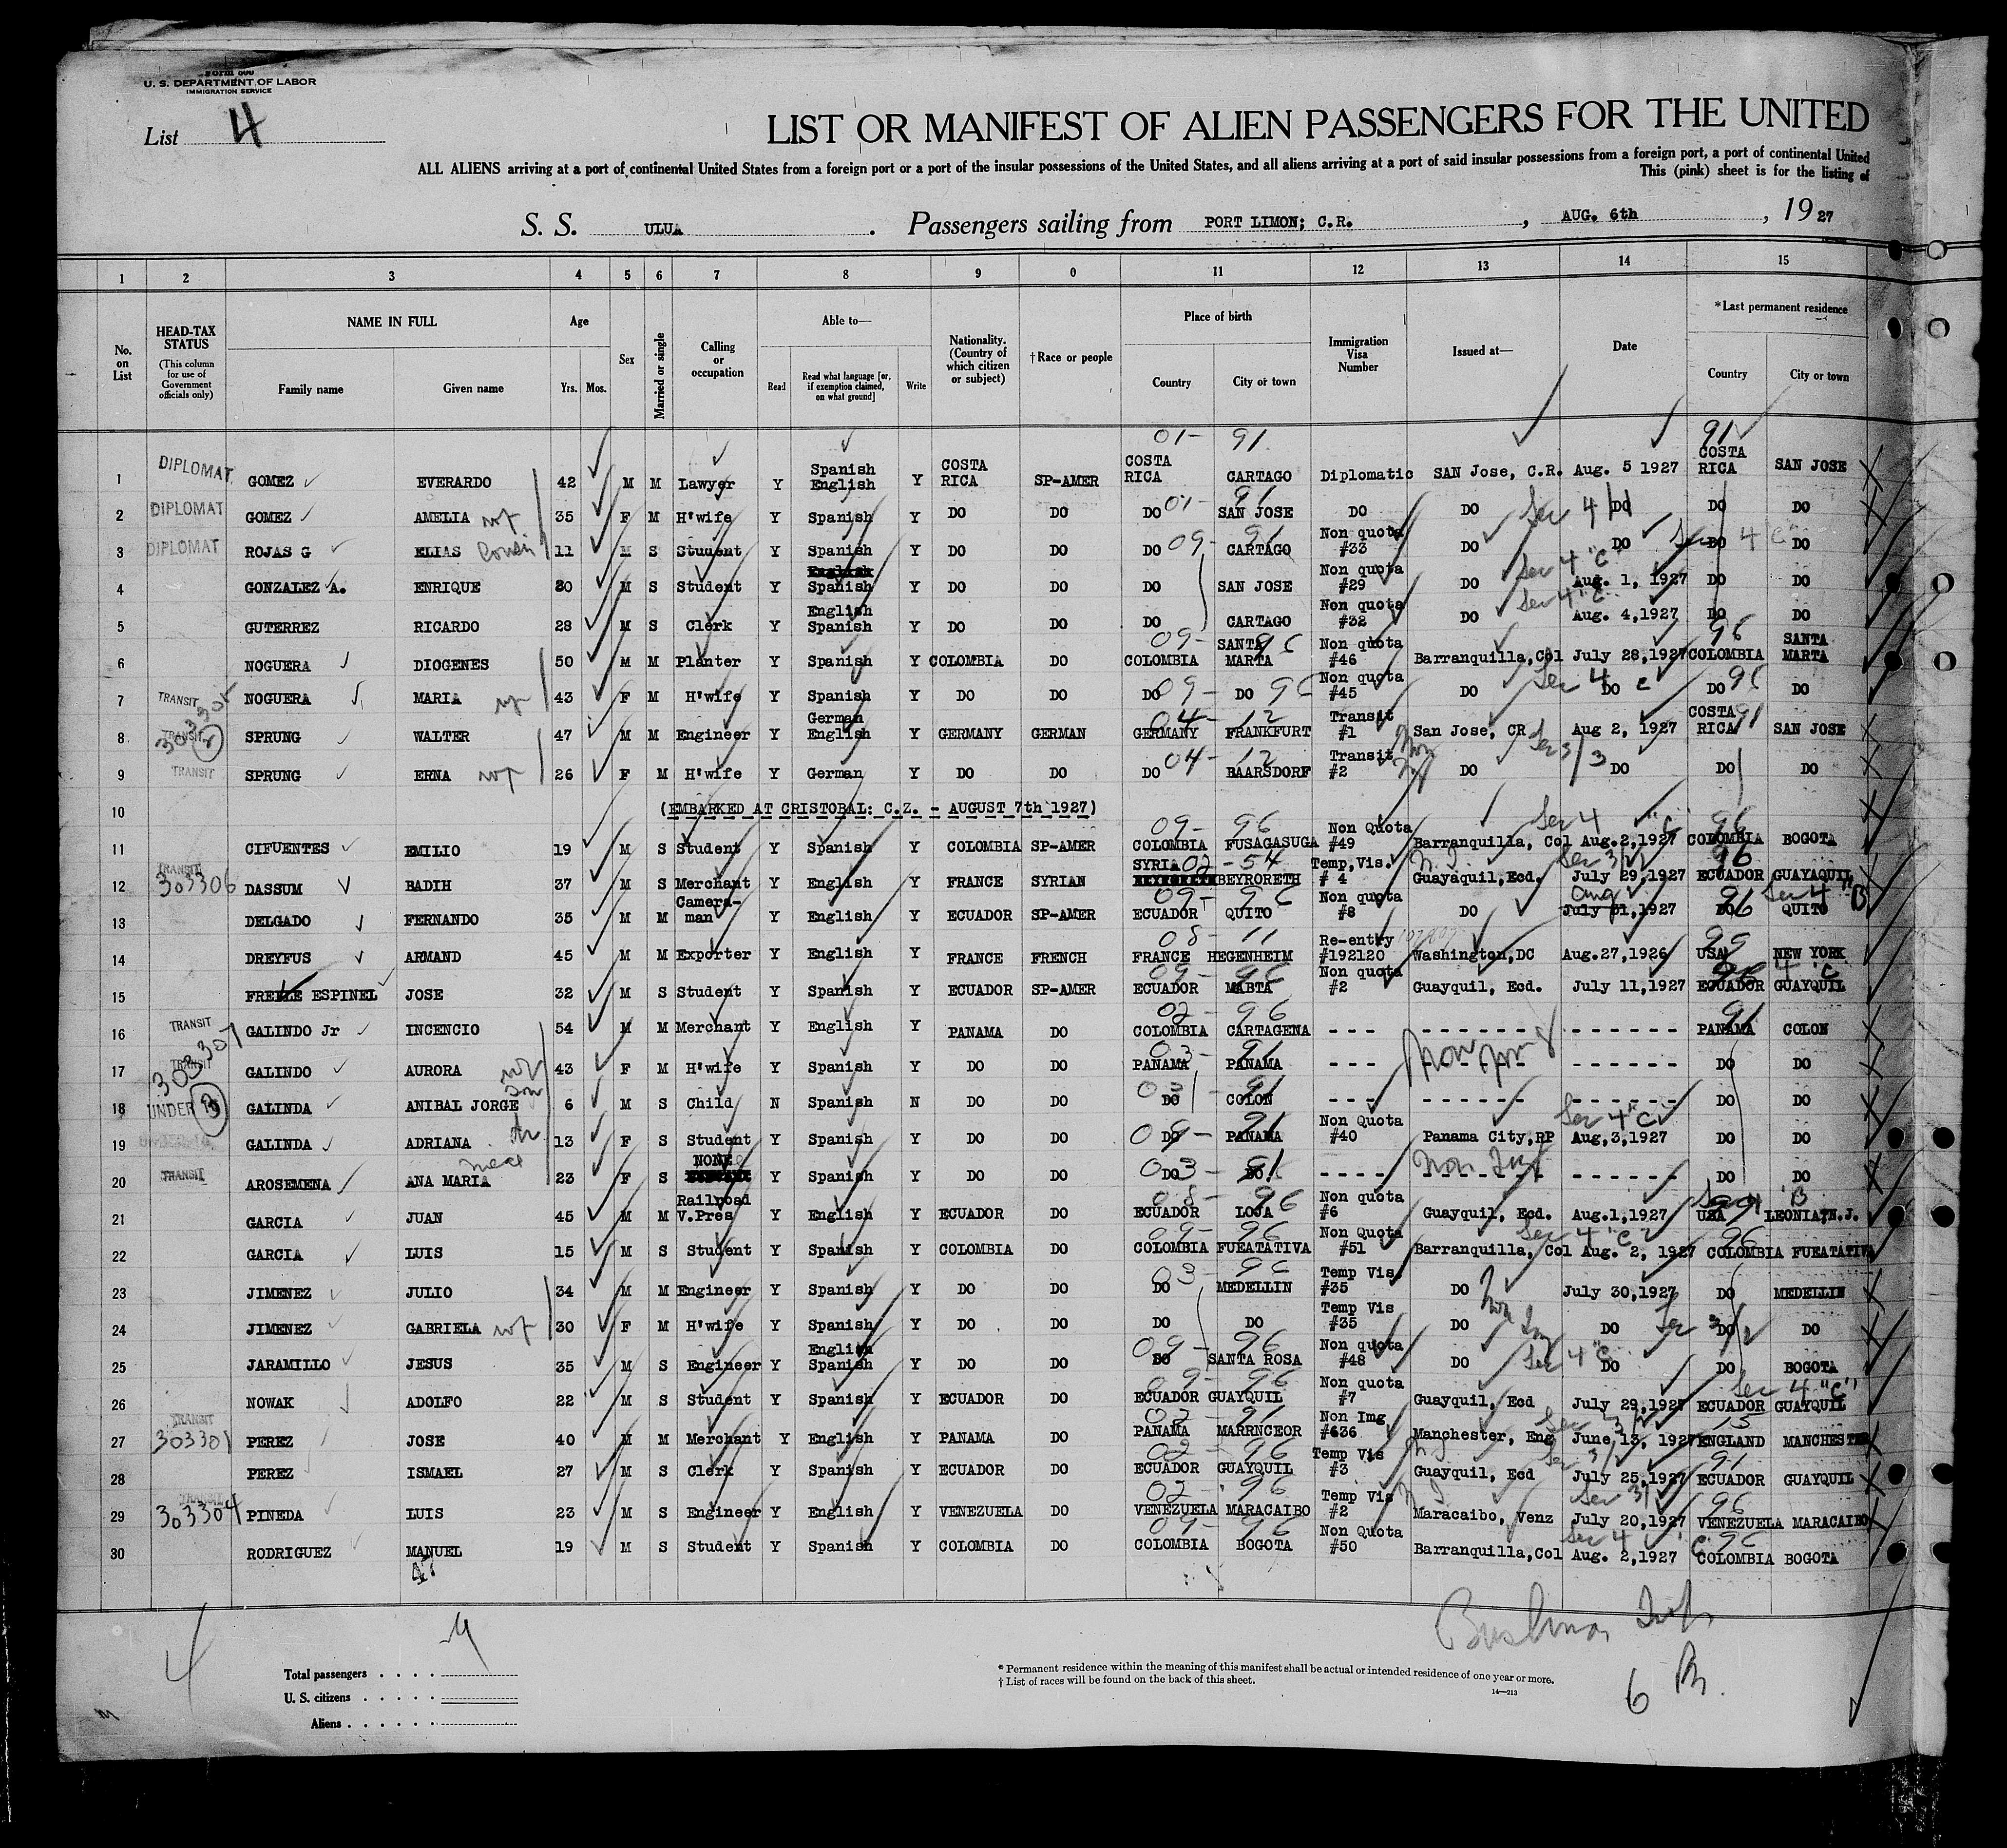 Form 500
U. S. DEPARTMENT OF LABOR
IMMIGRATION SERVICE
List 4
LIST OR MANIFEST OF ALIEN PASSENGERS FOR THE UNITED
ALL ALIENS arriving at a port of continental United States from a foreign port or a port of the insular possessions of the United States, and all aliens arriving at a port of said insular possessions from a foreign port, a port of continental United
This (pink) sheet is for the listing of
S. S. ULUA . Passengers sailing from PORT LIMON; C.R. , AUG. 6th , 19 27
1 2 3 4 5 6 7 8 9 0 11 12 13 14 15
No. on List
HEAD-TAX STATUS (This column for use of Government officials only)
NAME IN FULL Family name Given name
Age Yrs. Mos.
Sex
Married or single
Calling or occupation
Able to— Read Read what language [or, if exemption claimed, on what ground] Write
Nationality. (Country of which citizen or subject)
†Race or people
Place of birth Country City or town
Immigration Visa Number
Issued at—
Date
*Last permanent residence Country City or town
01- 91 91
1 DIPLOMAT GOMEZ EVERARDO 42 M M Lawyer Y Spanish English Y COSTA RICA SP-AMER COSTA RICA CARTAGO Diplomatic SAN Jose, C.R. Aug. 5 1927 COSTA RICA SAN JOSE
2 DIPLOMAT GOMEZ AMELIA wf 35 F M H'wife Y Spanish Y DO DO DO 01- 91 SAN JOSE DO DO Sec 4/1 DO DO DO
3 DIPLOMAT ROJAS G ELIAS Cousin 11 M S Student Y Spanish Y DO DO DO 09- 91 CARTAGO Non quota #33 DO DO Sec DO 4 "C" DO
4 GONZALEZ A. ENRIQUE 20 M S Student Y Spanish Y DO DO DO SAN JOSE Non quota #29 DO Sec 4 "C" Aug. 1, 1927 DO DO
5 GUTERREZ RICARDO 28 M S Clerk Y English Spanish Y DO DO DO CARTAGO Non quota #32 DO Sec 4 "C" Aug. 4,1927 DO DO
6 NOGUERA DIOGENES 50 M M Planter Y Spanish Y COLOMBIA DO COLOMBIA 09- 96 SANTA MARTA Non quota #46 Barranquilla,Col July 28,1927 COLOMBIA 96 SANTA MARTA
7 TRANSIT NOGUERA MARIA wf 43 F M H'wife Y Spanish Y DO DO DO 09- DO 96 Non quota #45 DO Sec 4 DO C DO 96 DO
8 TRANSIT SPRUNG WALTER 47 M M Engineer Y German English Y GERMANY GERMAN 04- 12 GERMANY FRANKFURT Transit #1 San Jose, CR Aug 2, 1927 COSTA RICA 91 SAN JOSE
9 TRANSIT SPRUNG ERNA wf 26 F M H'wife Y German Y DO DO DO 04- 12 BAARSDORF Transit #2 DO Sec 3/3 DO DO DO
10 (EMBARKED AT CRISTOBAL: C.Z. - AUGUST 7th 1927)
11 CIFUENTES EMILIO 19 M S Student Y Spanish Y COLOMBIA SP-AMER 09- 96 COLOMBIA FUSAGASUGA Non Quota #49 Barranquilla, Col Sec 4 "C" Aug.2,1927 96 COLOMBIA BOGOTA
12 TRANSIT 303306 DASSUM BADIH 37 M S Merchant Y English Y FRANCE SYRIAN SYRIA 02-54 BEYRORETH Temp,Vis. # 4 Guayaquil,Ecd. July 29,1927 96 ECUADOR GUAYAQUIL
13 DELGADO FERNANDO 35 M M Camera-man Y English Y ECUADOR SP-AMER 09- 96 ECUADOR QUITO Non quota #8 DO Aug July 31,1927 DO 96 Sec 4 "B" QUITO
14 DREYFUS ARMAND 45 M M Exporter Y English Y FRANCE FRENCH 08- 11 FRANCE HEGENHEIM Re-entry #192120 Washington,DC Aug.27,1926 99 USA NEW YORK
15 FREILE ESPINEL JOSE 32 M S Student Y Spanish Y ECUADOR SP-AMER 09- 96 ECUADOR MABTA Non quota #2 Guayquil, Ecd. July 11,1927 96 4 "C" ECUADOR GUAYQUIL
16 TRANSIT GALINDO Jr INCENCIO 54 M M Merchant Y English Y PANAMA DO 02- 96 COLOMBIA CARTAGENA - - - - - - - - - - - - - - - 91 PANAMA COLON
17 TRANSIT 303307 GALINDO AURORA wf 43 F M H'wife Y Spanish Y DO DO 03- 91 PANAMA PANAMA - - - - - - - - - - - - - - - DO DO
18 UNDER GALINDA ANIBAL JORGE son 6 M S Child N Spanish N DO DO 03 91 DO COLON - - - - - - - - - - - - - - - DO DO
19 GALINDA ADRIANA 13 F S Student Y Spanish Y DO DO 09- 91 DO PANAMA Non Quota #40 Panama City,RP Sec 4 "C" Aug,3,1927 DO DO
20 TRANSIT AROSEMENA ANA MARIA niece 23 F S NONE Y Spanish Y DO DO DO 03- 91 DO - - - - - - - - - - - - - - - DO DO
21 GARCIA JUAN 45 M M Railroad V.Pres Y English Y ECUADOR DO 08- 96 ECUADOR LOJA Non quota #6 Guayquil, Ecd. Aug.1,1927 Sec 4 "B" USA LEONIA,N.J.
22 GARCIA LUIS 15 M S Student Y Spanish Y COLOMBIA DO 09- 96 COLOMBIA FUEATATIVA Non Quota #51 Barranquilla, Col Sec 4 "C" Aug. 2, 1927 96 COLOMBIA FUEATATIVA
23 JIMENEZ JULIO 34 M M Engineer Y Spanish Y DO DO DO 03- 96 MEDELLIN Temp Vis. #35 DO July 30,1927 DO MEDELLIN
24 JIMENEZ GABRIELA wf 30 F M H'wife Y Spanish Y DO DO DO DO Temp Vis #35 DO DO Sec 3/2 DO DO
25 JARAMILLO JESUS 35 M S Engineer Y English Spanish Y DO DO 09- 96 DO SANTA ROSA Non quota #48 DO Sec 4 "C" DO DO BOGOTA
26 NOWAK ADOLFO 22 M S Student Y Spanish Y ECUADOR DO 09- 96 ECUADOR GUAYQUIL Non quota #7 Guayquil, Ecd July 29,1927 Sec 4 "C" ECUADOR GUAYQUIL
27 TRANSIT 303301 PEREZ JOSE 40 M M Merchant Y English Y PANAMA DO 02- 91 PANAMA MARRNCEOR Non Img, #636 Manchester, Eng June,13, 1927 15 ENGLAND MANCHESTER
28 PEREZ ISMAEL 27 M S Clerk Y Spanish Y ECUADOR DO 02- 96 ECUADOR GUAYQUIL Temp Vis #3 Guayquil, Ecd Sec 3/ July 25,1927 91 ECUADOR GUAYQUIL
29 TRANSIT 303304 PINEDA LUIS 23 M S Engineer Y English Y VENEZUELA DO 02- 96 VENEZUELA MARACAIBO Temp Vis #2 Maracaibo, Venz Sec 3/ July 20,1927 96 VENEZUELA MARACAIBO
30 RODRIGUEZ MANUEL 19 M S Student Y Spanish Y COLOMBIA DO 09- 96 COLOMBIA BOGOTA Non Quota #50 Barranquilla,Col Sec 4 "C" Aug. 2,1927 96 COLOMBIA BOGOTA
47
4
Total passengers . . . .
U. S. citizens . . . . .
Aliens . . . . . .
* Permanent residence within the meaning of this manifest shall be actual or intended residence of one year or more.
† List of races will be found on the back of this sheet.
14—213
6